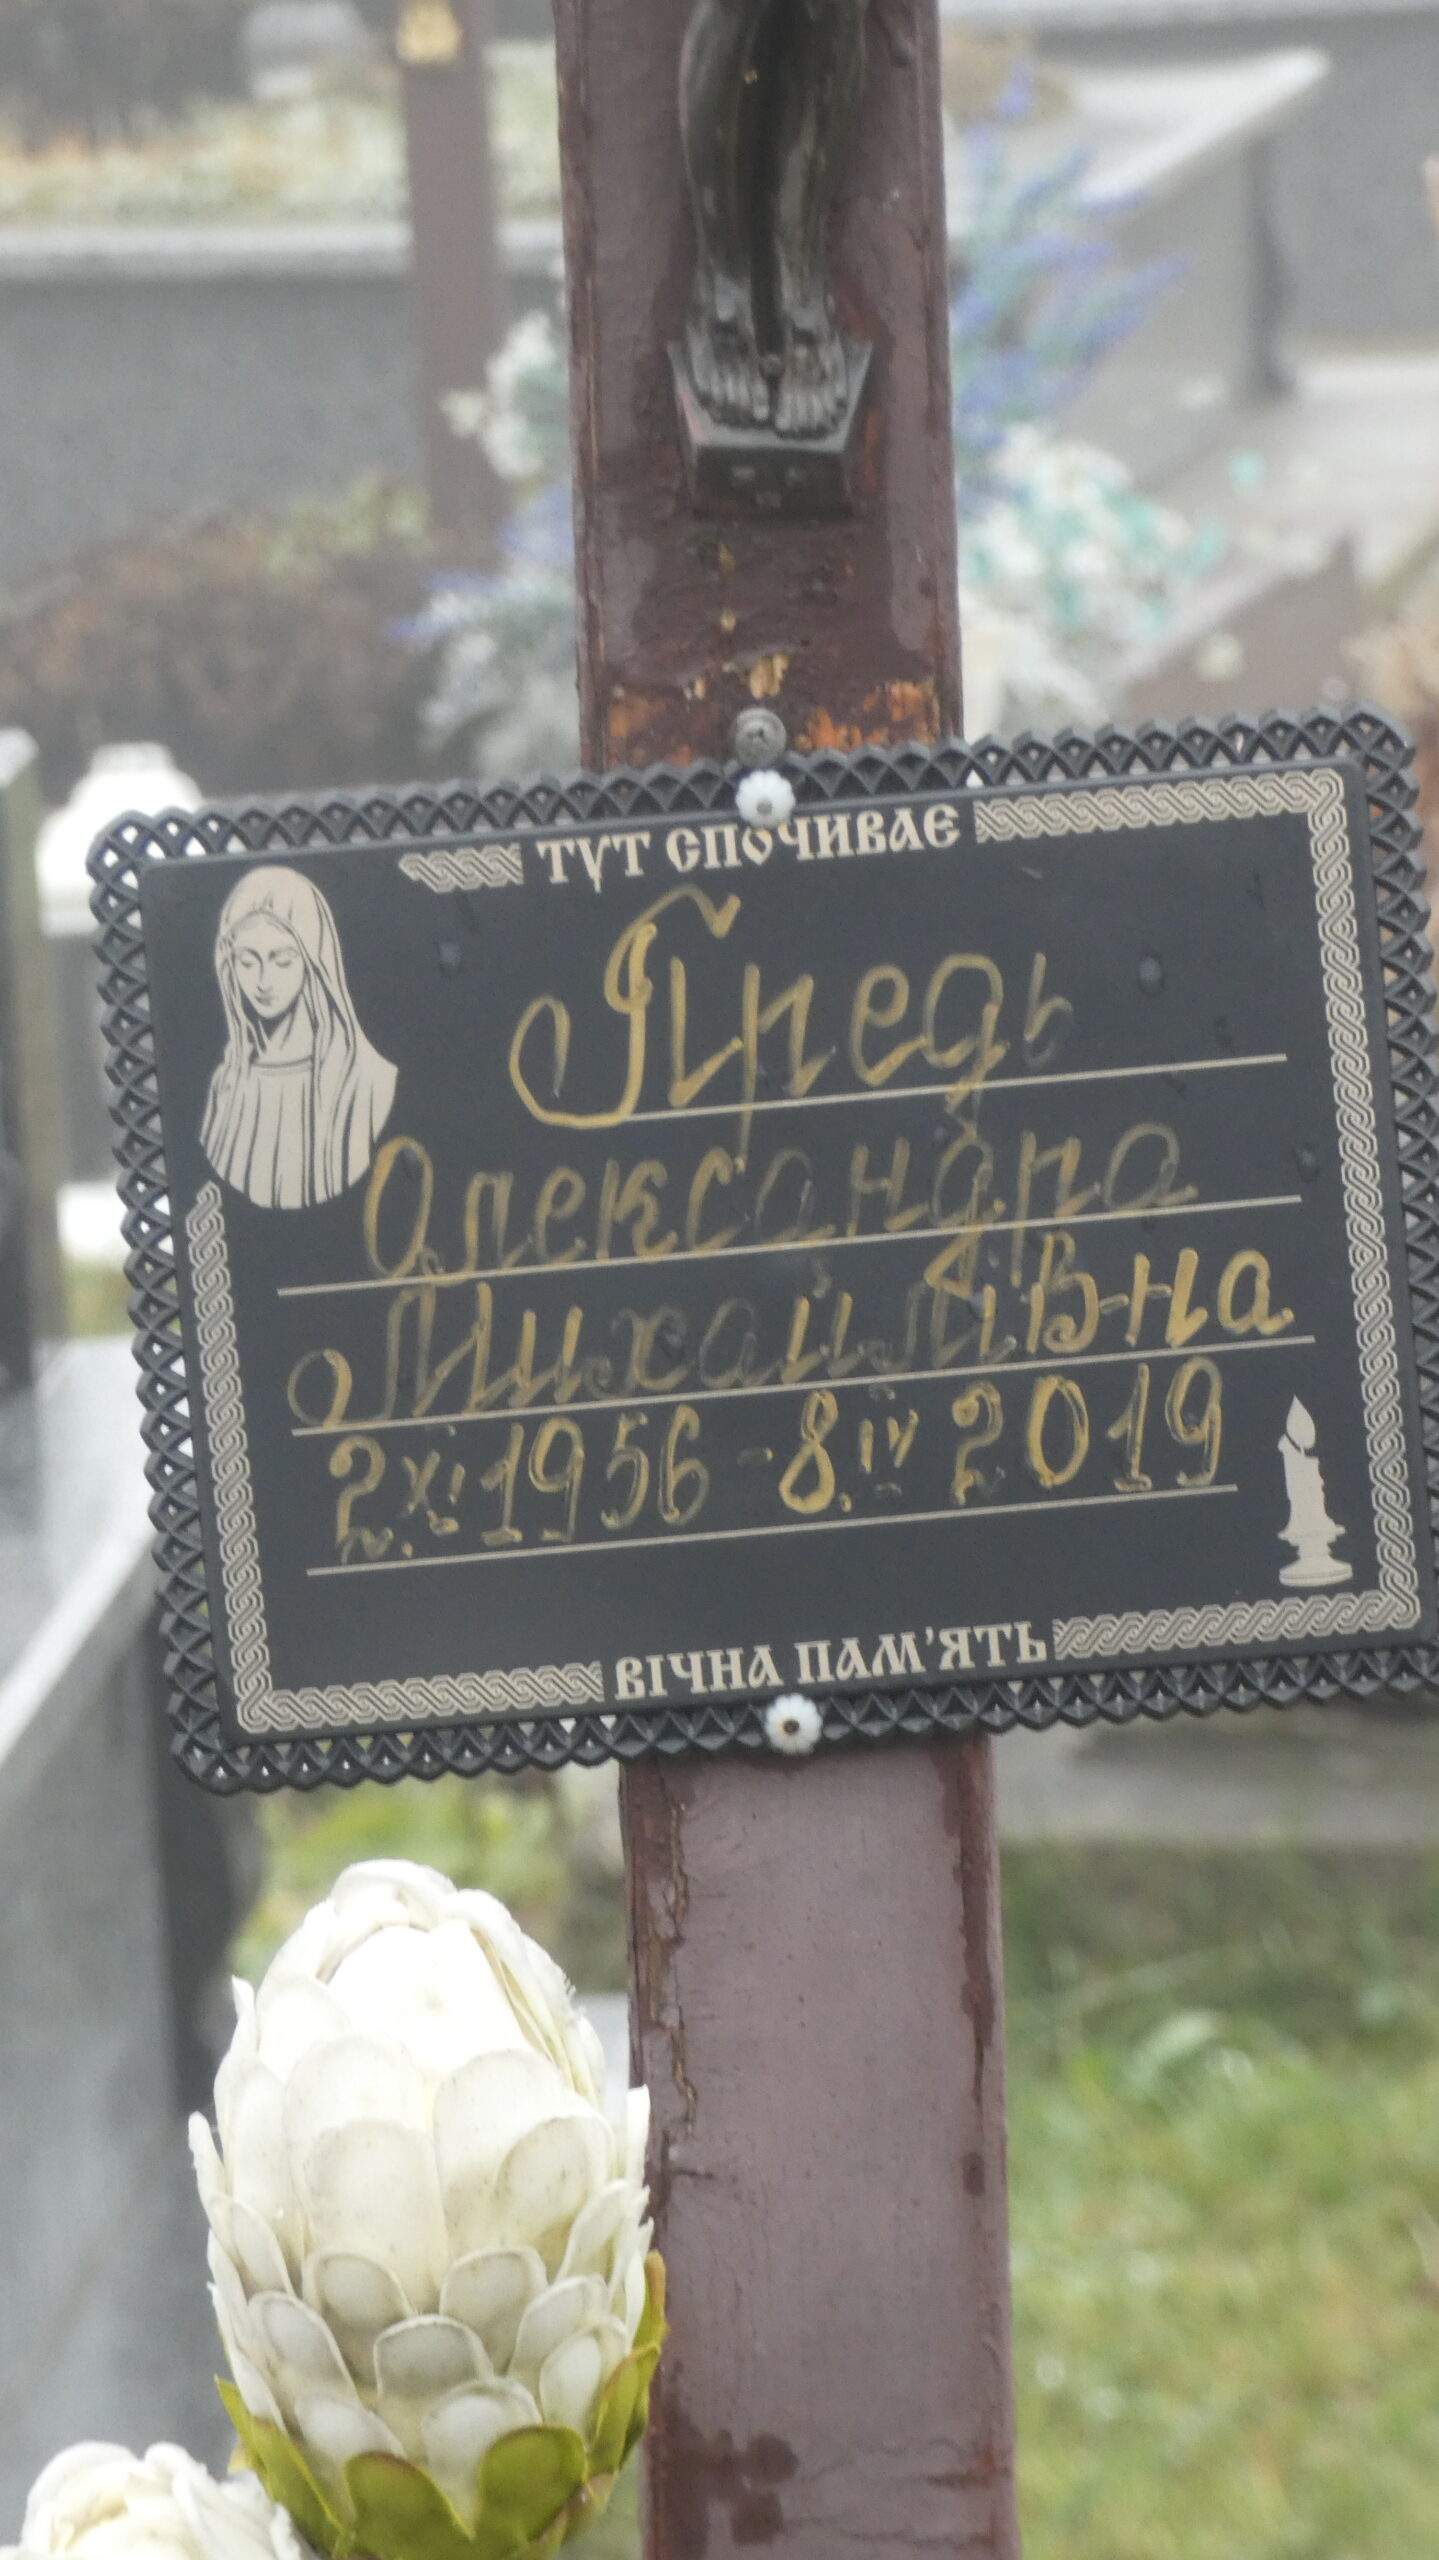 ТУТ СПОЧИВАЄ
Олександра
Михайлівна
2.XI.1956 - 8.IV 2019
ВІЧНА ПАМ'ЯТЬ